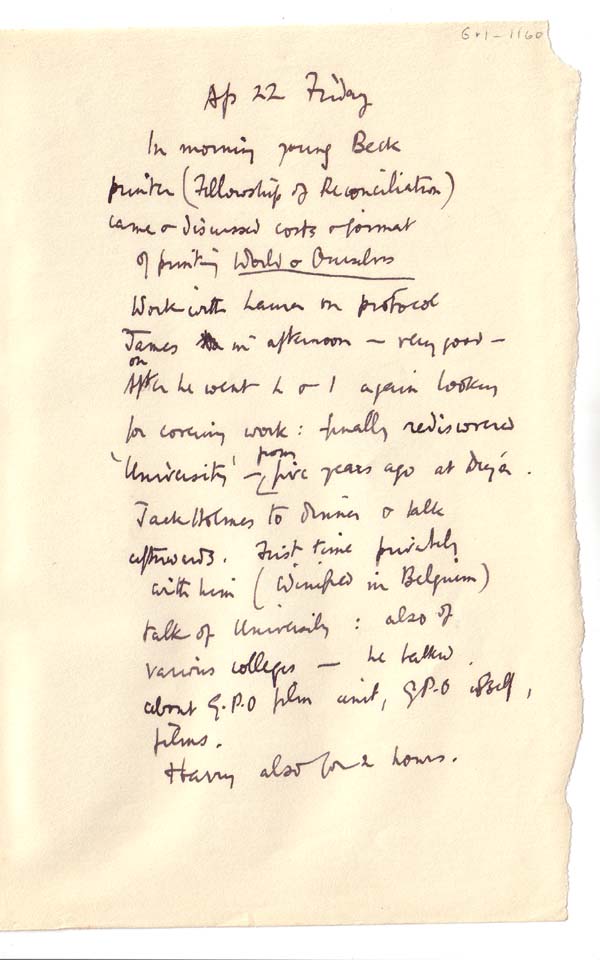 G+1-1160
Ap 22 Friday
In morning young Beck
printer (Fellowship of Reconciliation)
came & discussed costs & format
of printing World & Ourselves
Work with Laura on protocol
James in afternoon – very good –
on
After he went L & I again looking
for covering word: finally rediscovered
'University' – from five years ago at Deyá.
Jack Holmes to dinner & talk
afterwards. First time privately
with him (Winifred in Belgium)
talk of University: also of
various colleges – he talked
about G.P.O film unit, G.P.O itself,
films.
Harry also for 2 hours.